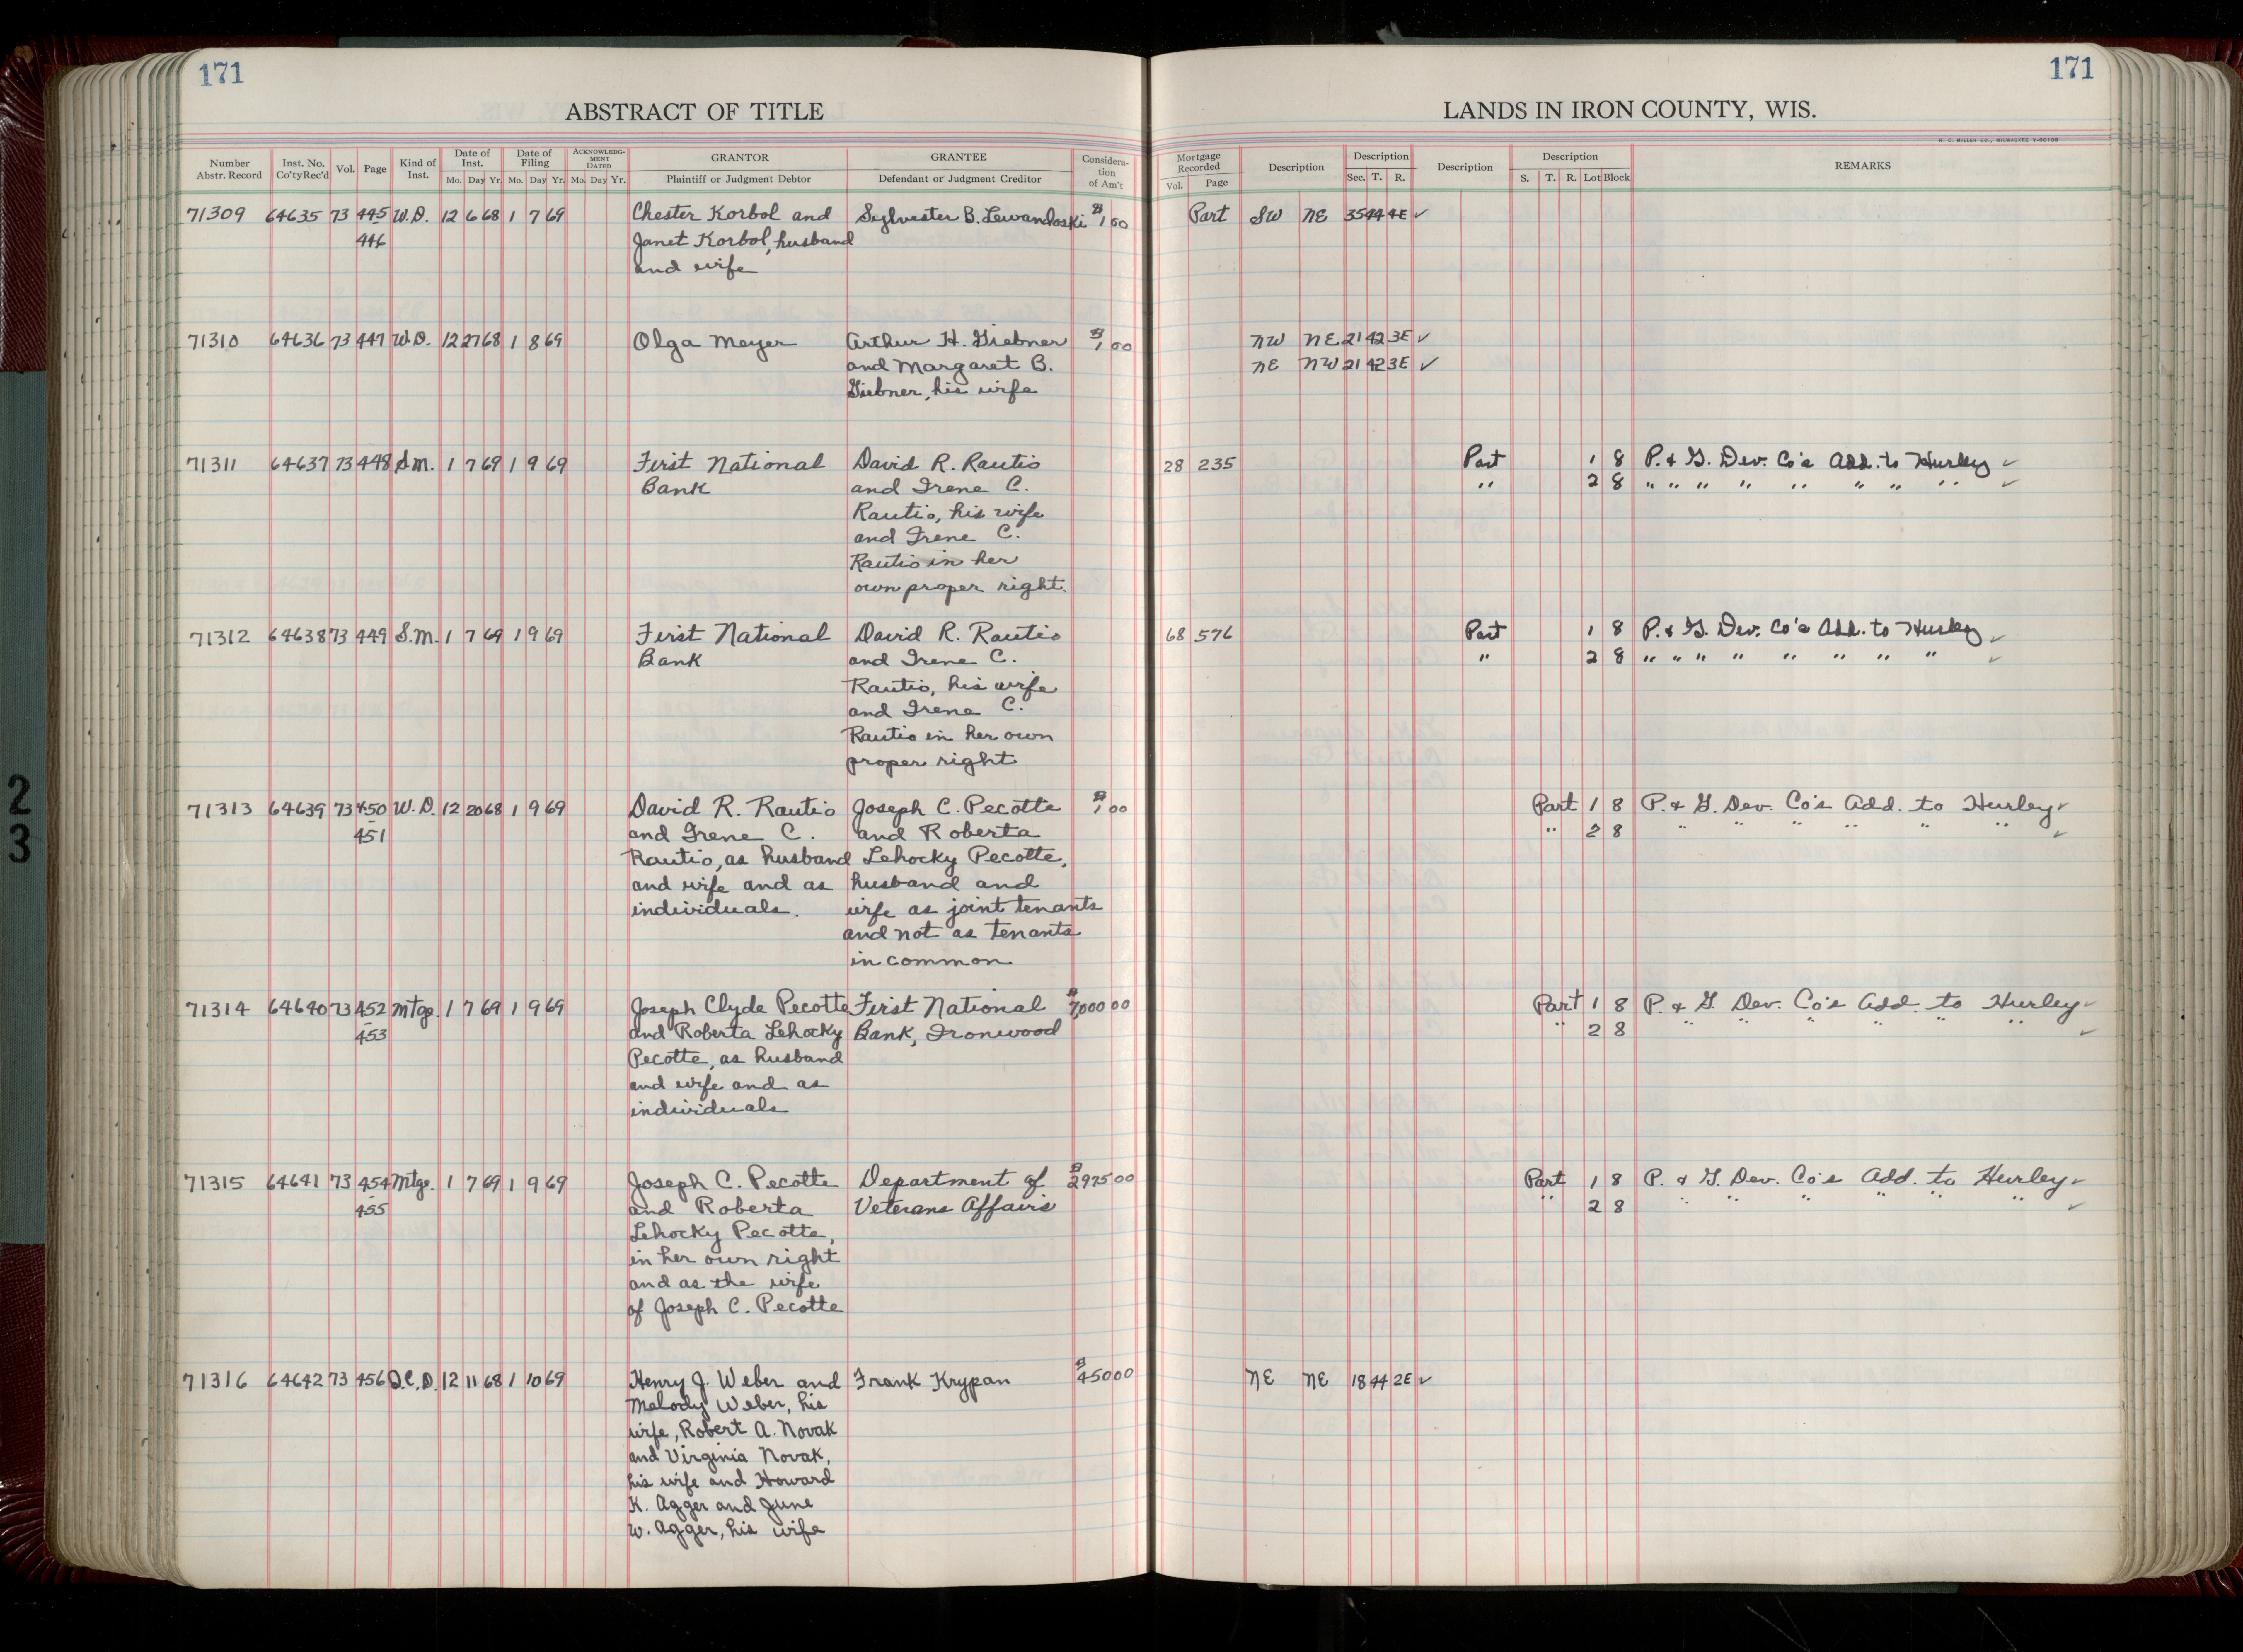 171
171
ABSTRACT OF TITLE
LANDS IN IRON COUNTY, WIS.
H. C. MILLER CO., MILWAUKEE
Number Abstr. Record Inst. No. Co'ty Rec'd Vol. Page Kind of Inst. Date of Inst. Mo. Day Yr. Date of Filing Mo. Day Yr. ACKNOWLEDGMENT DATED Mo. Day Yr. GRANTOR Plaintiff or Judgment Debtor GRANTEE Defendant or Judgment Creditor Consideration of Am't Mortgage Recorded Vol. Page Description Description Sec. T. R. Description Description S. T. R. Lot Block REMARKS
71309 64635 73 445 W.D. 12 6 68 1 7 69 Chester Korbol and Sylvester B. Lewandoski $1 00 Part SW NE 35 44 4E ✓
446 Janet Korbol, husband
and wife
71310 64636 73 447 W.D. 12 27 68 1 8 69 Olga Meyer Arthur H. Giebner $1 00 NW NE 21 42 3E ✓
and Margaret B. NE NW 21 42 3E ✓
Giebner, his wife
71311 64637 73 448 S.M. 1 7 69 1 9 69 First National David R. Rautio 28 235 Part 1 8 P. & G. Dev. Co's Add. to Hurley ✓
Bank and Irene C. " 2 8 " " " " " " " " ✓
Rautio, his wife
and Irene C.
Rautio in her
own proper right.
71312 64638 73 449 S.M. 1 7 69 1 9 69 First National David R. Rautio 68 576 Part 1 8 P. & G. Dev. Co's Add. to Hurley ✓
Bank and Irene C. " 2 8 " " " " " " " " ✓
Rautio, his wife
and Irene C.
Rautio in her own
proper right
71313 64639 73 450 W.D. 12 20 68 1 9 69 David R. Rautio Joseph C. Pecotte $1 00 Part 1 8 P. & G. Dev. Co's Add. to Hurley ✓
- 451 and Irene C. and Roberta " 2 8 " " " " " " ✓
Rautio, as husband Lehocky Pecotte,
and wife and as husband and
individuals. wife as joint tenants
and not as tenants
in common
71314 64640 73 452 Mtge. 1 7 69 1 9 69 Joseph Clyde Pecotte First National $7,000 00 Part 1 8 P. & G. Dev. Co's Add. to Hurley ✓
- 453 and Roberta Lehocky Bank, Ironwood " 2 8 " " " " " " ✓
Pecotte, as husband
and wife and as
individuals
71315 64641 73 454 Mtge. 1 7 69 1 9 69 Joseph C. Pecotte Department of $2975 00 Part 1 8 P. & G. Dev. Co's Add. to Hurley ✓
- 455 and Roberta Veterans Affairs " 2 8 " " " " " " ✓
Lehocky Pecotte,
in her own right
and as the wife
of Joseph C. Pecotte
71316 64642 73 456 Q.C.D. 12 11 68 1 10 69 Henry J. Weber and Frank Krypan $450 00 NE NE 18 44 2E ✓
Melody Weber, his
wife, Robert A. Novak
and Virginia Novak,
his wife and Howard
K. Agger and June
W. Agger, his wife
2
3